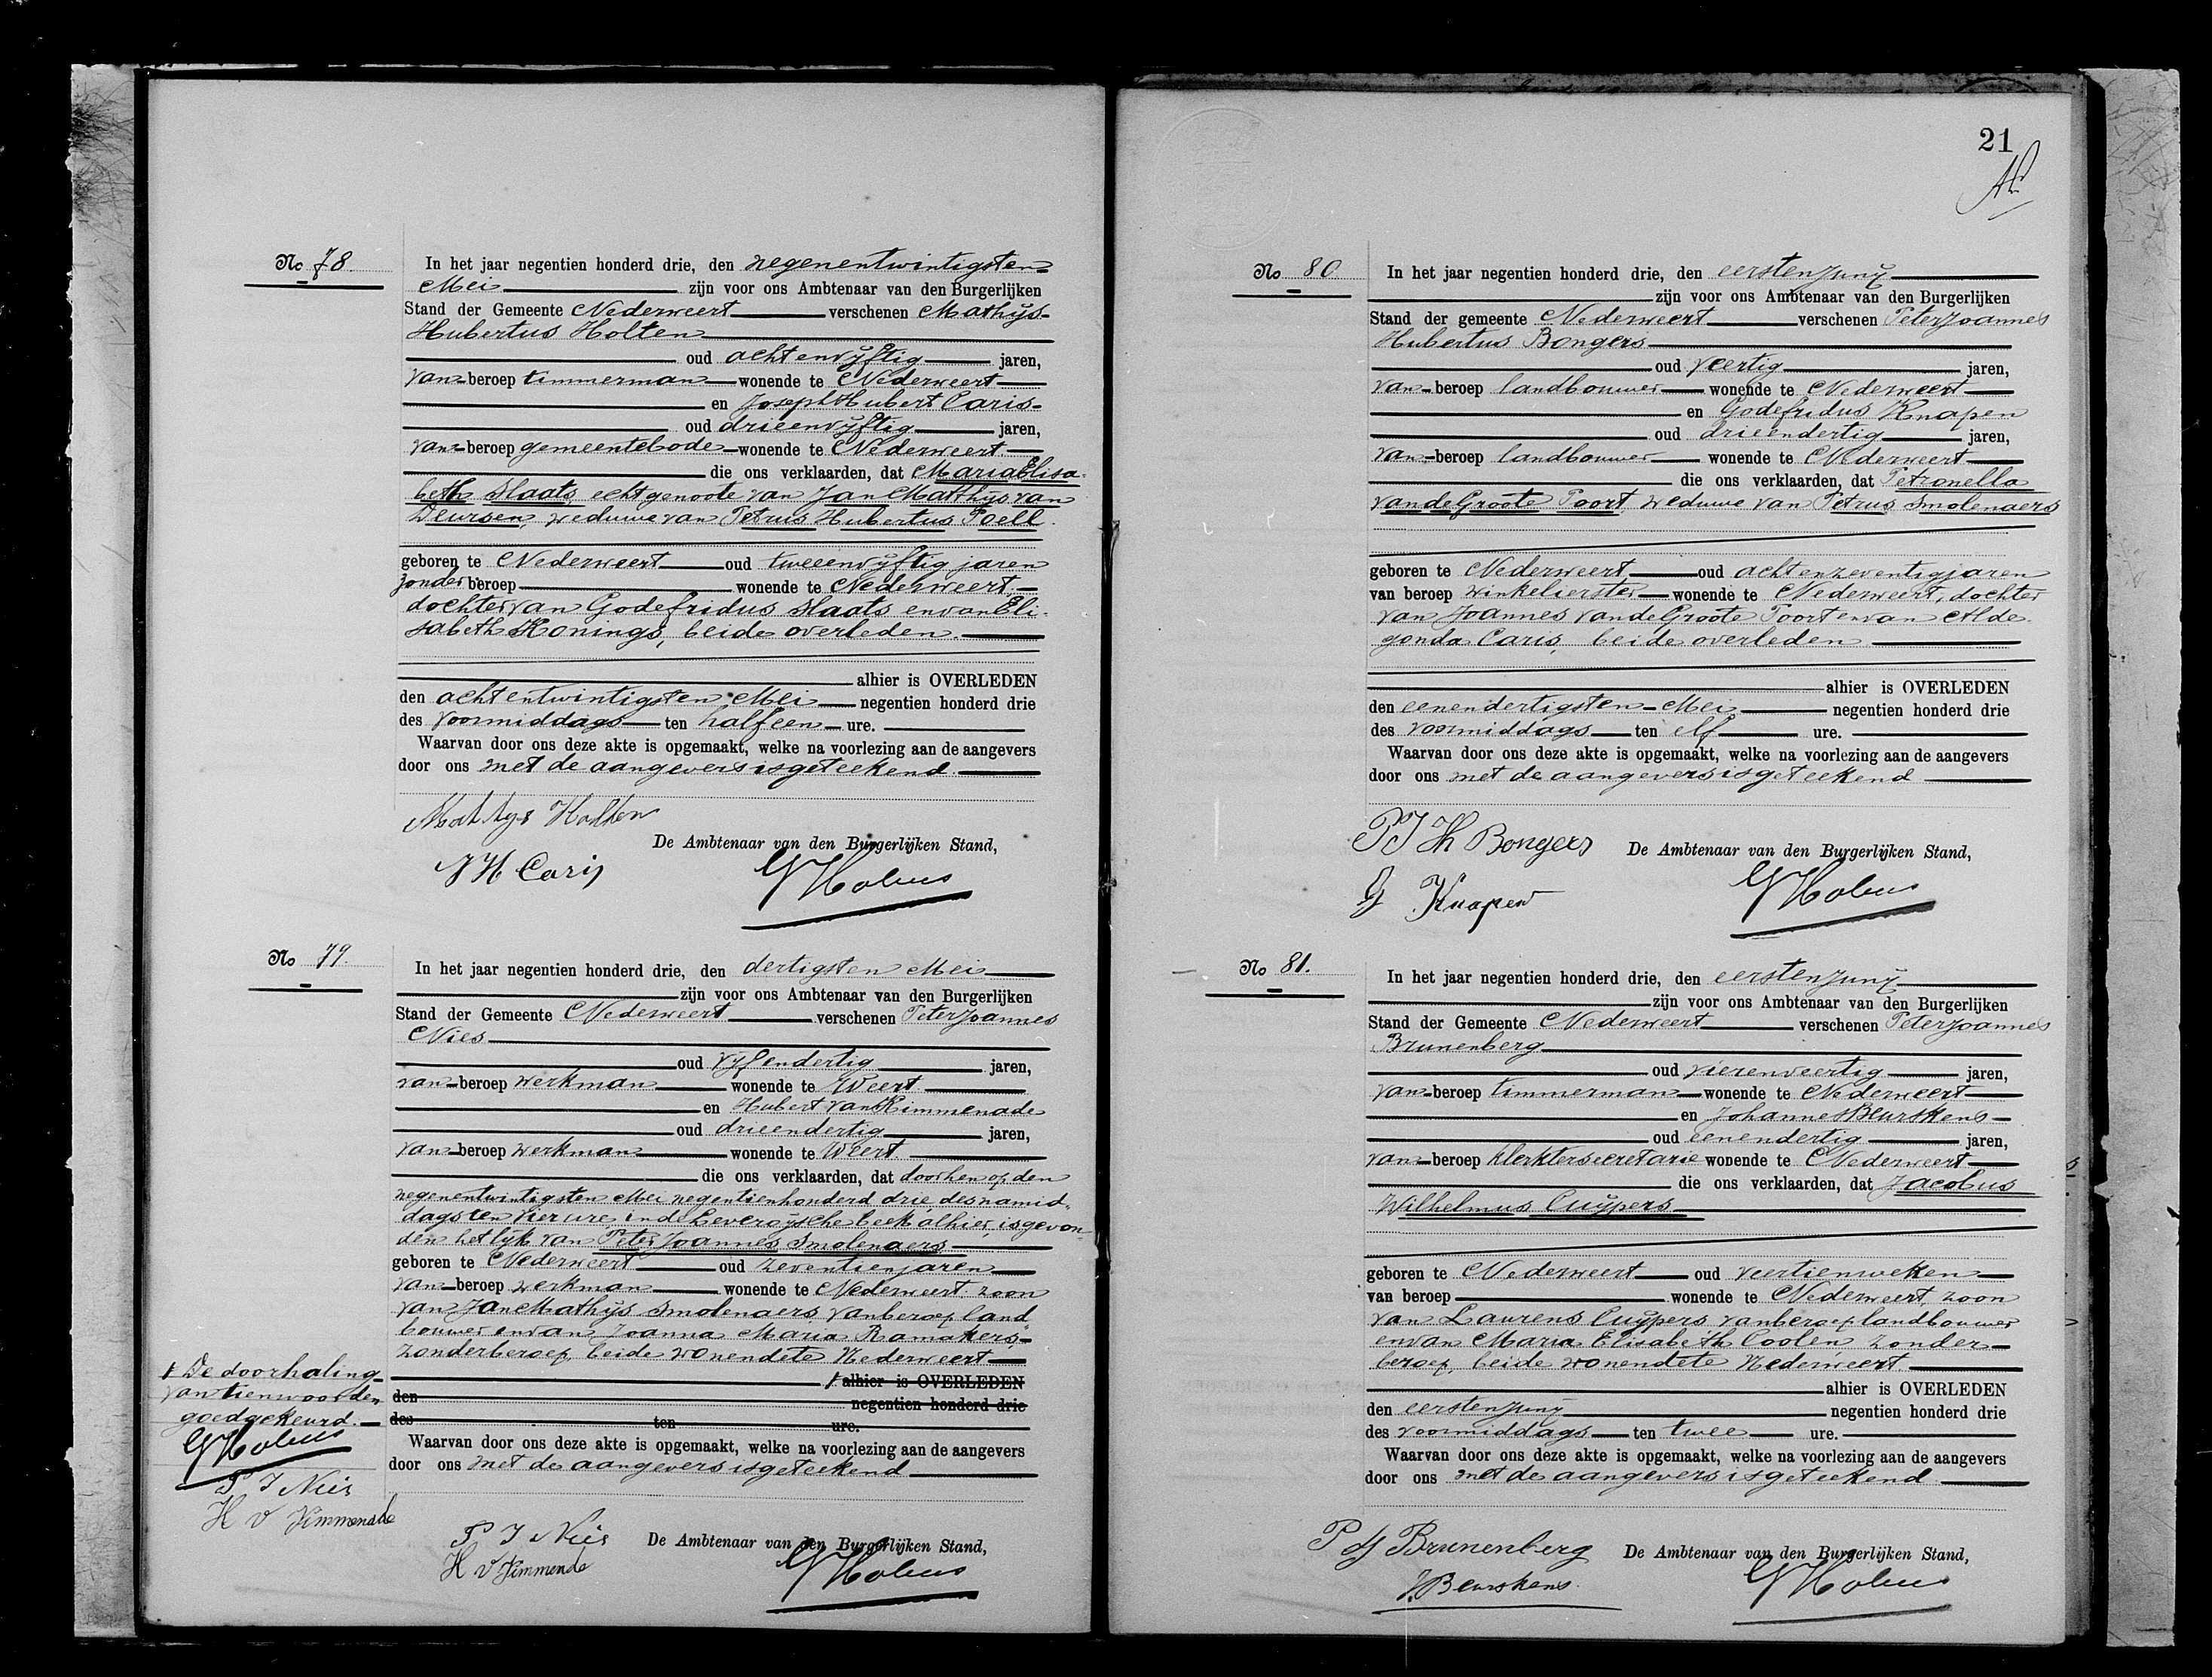 No 78.
In het jaar negentien honderd drie, den negenentwintigsten
Mei zijn voor ons Ambtenaar van den Burgerlijken
Stand der Gemeente Nederweert verschenen Mathijs
Hubertus Holten
oud achtenvijftig jaren,
van beroep timmerman wonende te Nederweert
en Joseph Hubert Caris
oud drieenvijftig jaren,
van beroep gemeentebode wonende te Nederweert
die ons verklaarden, dat Maria Elisa-
beth Slaats, echtgenoote van Jan Matthijs van
Deursen, weduwe van Petrus Hubertus Poell.
geboren te Nederweert oud tweeenvijftig jaren
zonder beroep wonende te Nederweert,
dochter van Godefridus Slaats en van Eli-
sabeth Konings, beide overleden.
alhier is OVERLEDEN
den achtentwintigsten Mei negentien honderd drie
des voormiddags ten half een ure.
Waarvan door ons deze akte is opgemaakt, welke na voorlezing aan de aangevers
door ons met de aangevers is geteekend.
Mathijs Holten
De Ambtenaar van den Burgerlijken Stand,
J H Caris
No 79.
In het jaar negentien honderd drie, den dertigsten Mei
zijn voor ons Ambtenaar van den Burgerlijken
Stand der Gemeente Nederweert verschenen Peter Joannes
Nies
oud vijfendertig jaren,
van beroep werkman wonende te Weert
en Hubert van Kimmenade
oud drieendertig jaren,
van beroep werkman wonende te Weert
die ons verklaarden, dat door hen op den
negenentwintigsten Mei negentienhonderd drie des namid-
dags ten vier ure, in de Leveroijsche beek alhier, is gevon-
den het lijk van Peter Joannes Smolenaers
geboren te Nederweert oud zeventien jaren
van beroep werkman wonende te Nederweert, zoon
van Jan Mathijs Smolenaers van beroep land
bouwer en van Joanna Maria Ramakers,
zonder beroep, beide wonende te Nederweert
alhier is OVERLEDEN
den negentien honderd drie
des ten ure.
Waarvan door ons deze akte is opgemaakt, welke na voorlezing aan de aangevers
door ons met de aangevers is geteekend
De doorhaling
van tien woorden
goedgekeurd.
P J Nies
H v Kimmenade
P J Nies
De Ambtenaar van den Burgerlijken Stand,
H v Kimmende
21
No 80
In het jaar negentien honderd drie, den eersten Junij
zijn voor ons Ambtenaar van den Burgerlijken
Stand der gemeente Nederweert verschenen Peter Joannes
Hubertus Bongers
oud veertig jaren,
van beroep landbouwer wonende te Nederweert
en Godefridus Knapen
oud drieendertig jaren,
van beroep landbouwer wonende te Nederweert
die ons verklaarden, dat Petronella
van de Groote Poort, weduwe van Petrus Smolenaers
geboren te Nederweert oud achtenzeventig jaren
van beroep winkelierster wonende te Nederweert, dochter
van Joannes van de Groote Poort en van Alde
gonda Caris, beide overleden
alhier is OVERLEDEN
den eenendertigsten Mei negentien honderd drie
des voormiddags ten elf ure.
Waarvan door ons deze akte is opgemaakt, welke na voorlezing aan de aangevers
door ons met de aangevers is geteekend
P J H Bongers
De Ambtenaar van den Burgerlijken Stand,
G Knapen
No 81.
In het jaar negentien honderd drie, den eersten Junij
zijn voor ons Ambtenaar van den Burgerlijken
Stand der Gemeente Nederweert verschenen Peter Joannes
Brunenberg
oud vierenveertig jaren,
van beroep timmerman wonende te Nederweert
en Johannes Beurskens
oud eenendertig jaren,
van beroep klerk ter secretarie wonende te Nederweert
die ons verklaarden, dat Jacobus
Wilhelmus Cuijpers
geboren te Nederweert oud veertien weken
van beroep wonende te Nederweert, zoon
van Laurens Cuijpers van beroep landbouwer
en van Maria Elisabeth Coolen zonder
beroep, beide wonende te Nederweert.
alhier is OVERLEDEN
den eersten Junij negentien honderd drie
des voormiddags ten twee ure.
Waarvan door ons deze akte is opgemaakt, welke na voorlezing aan de aangevers
door ons met de aangevers is geteekend
P J Brunenberg
De Ambtenaar van den Burgerlijken Stand,
J. Beurskens.